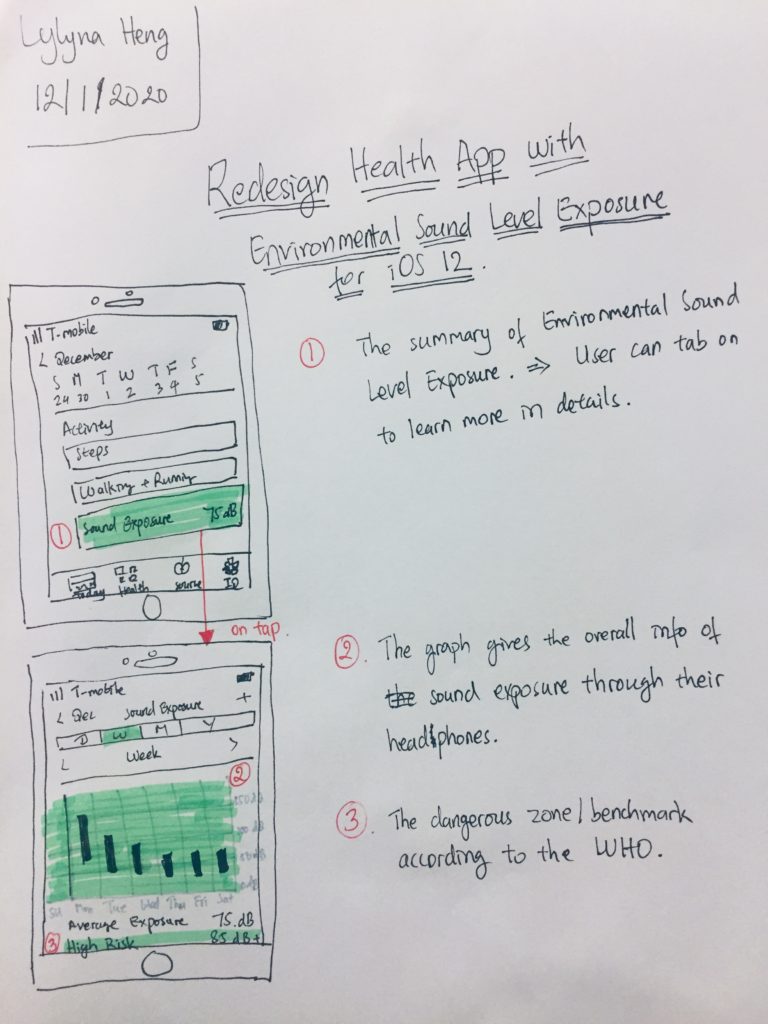 Lylyna Heng
12/1/2020
Redesign Health App with
Environmental Sound Level Exposure
for iOS 12.
T-mobile
< December
S M T W T F S
29 30 1 2 3 4 5
Activity
Steps
Walking + Running
1 Sound Exposure 75 dB
Today Health Source ID
on tap.
T-mobile
< Dec Sound Exposure +
D W M Y
< Week >
2
150 dB
100 dB
Sun Mon Tue Wed Thu Fri Sat
Average Exposure 75.dB
3 High Risk 85 dB+
1 The summary of Environmental Sound
Level Exposure. => User can tab on
to learn more in details.
2. The graph gives the overall info of
the sound exposure through their
headphones.
3. The dangerous zone/benchmark
according to the WHO.